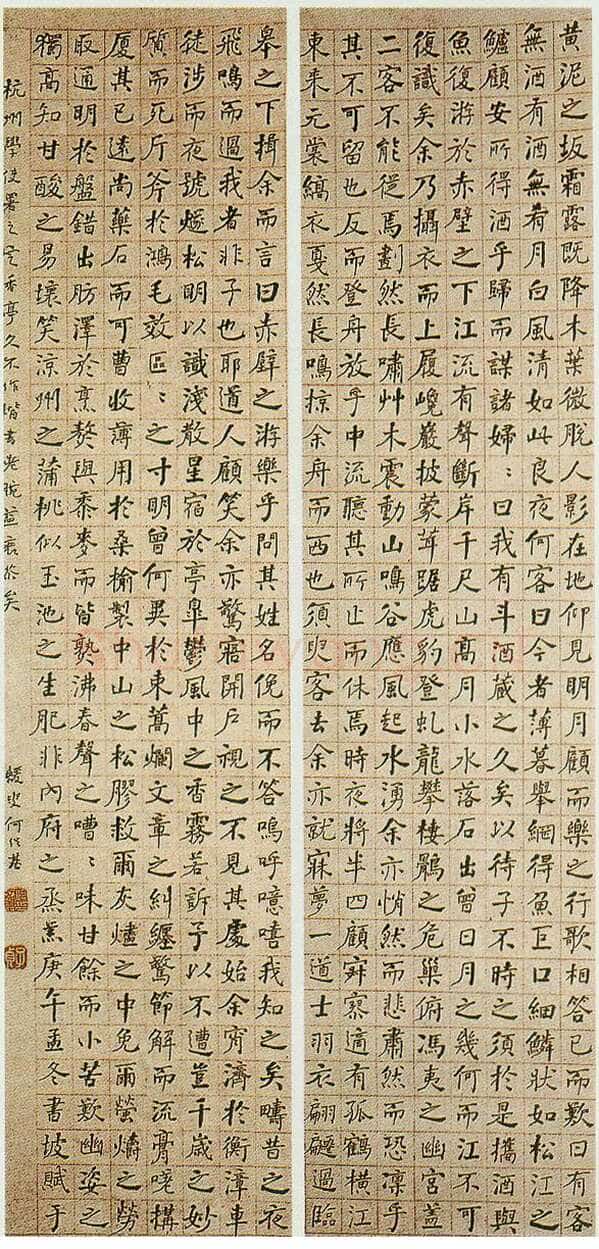 黄泥之坂霜露既降木葉微脫人影在地仰見明月顧而樂之行歌相答已而歎曰有客
無酒有酒無肴月白風清如此良夜何客曰今者薄暮舉網得魚巨口細鱗狀如松江之
鱸顧安所得酒乎歸而謀諸婦〻曰我有斗酒藏之久矣以待子不時之須於是攜酒與
魚復游於赤壁之下江流有聲斷岸千尺山高月小水落石出曾日月之幾何而江不可
復識矣余乃攝衣而上履巉巖披蒙茸踞虎豹登虬龍攀棲鶻之危巢俯馮夷之幽宮蓋
二客不能從焉劃然長嘯艸木震動山鳴谷應風起水湧余亦悄然而悲肅然而恐凜乎
其不可留也反而登舟放乎中流聽其所止而休焉時夜將半四顧寂寥適有孤鶴橫江
東来元裳縞衣戛然長鳴掠余舟而西也須臾客去余亦就寐夢一道士羽衣翩躚過臨
皋之下揖余而言曰赤壁之游樂乎問其姓名俛而不答嗚呼噫嘻我知之矣疇昔之夜
飛鳴而過我者非子也耶道人顧笑余亦驚寤開戶視之不見其處始余宵濟於衡漳車
徒涉而夜號燧松明以識淺散星宿於亭皋鬱風中之香霧若訴予以不遭豈千歲之妙
質而死斤斧於鴻毛效區〻之寸明曾何異於束蒿爛文章之糾纏驚節解而流膏嘵構
厦其已遠尚藥石而可曹收薄用於桑榆製中山之松膠救爾灰燼之中免爾螢爝之勞
取通明於盤錯出肪澤於烹熬與黍麥而皆熟沸春聲之嘈〻味甘餘而小苦歎幽姿之
獨高知甘酸之易壞笑涼州之蒲桃似玉池之生肥非內府之烝羔庚午孟冬書坡賦于
杭州學使署之定香亭久不作楷書老腕益
蝯叟何紹基